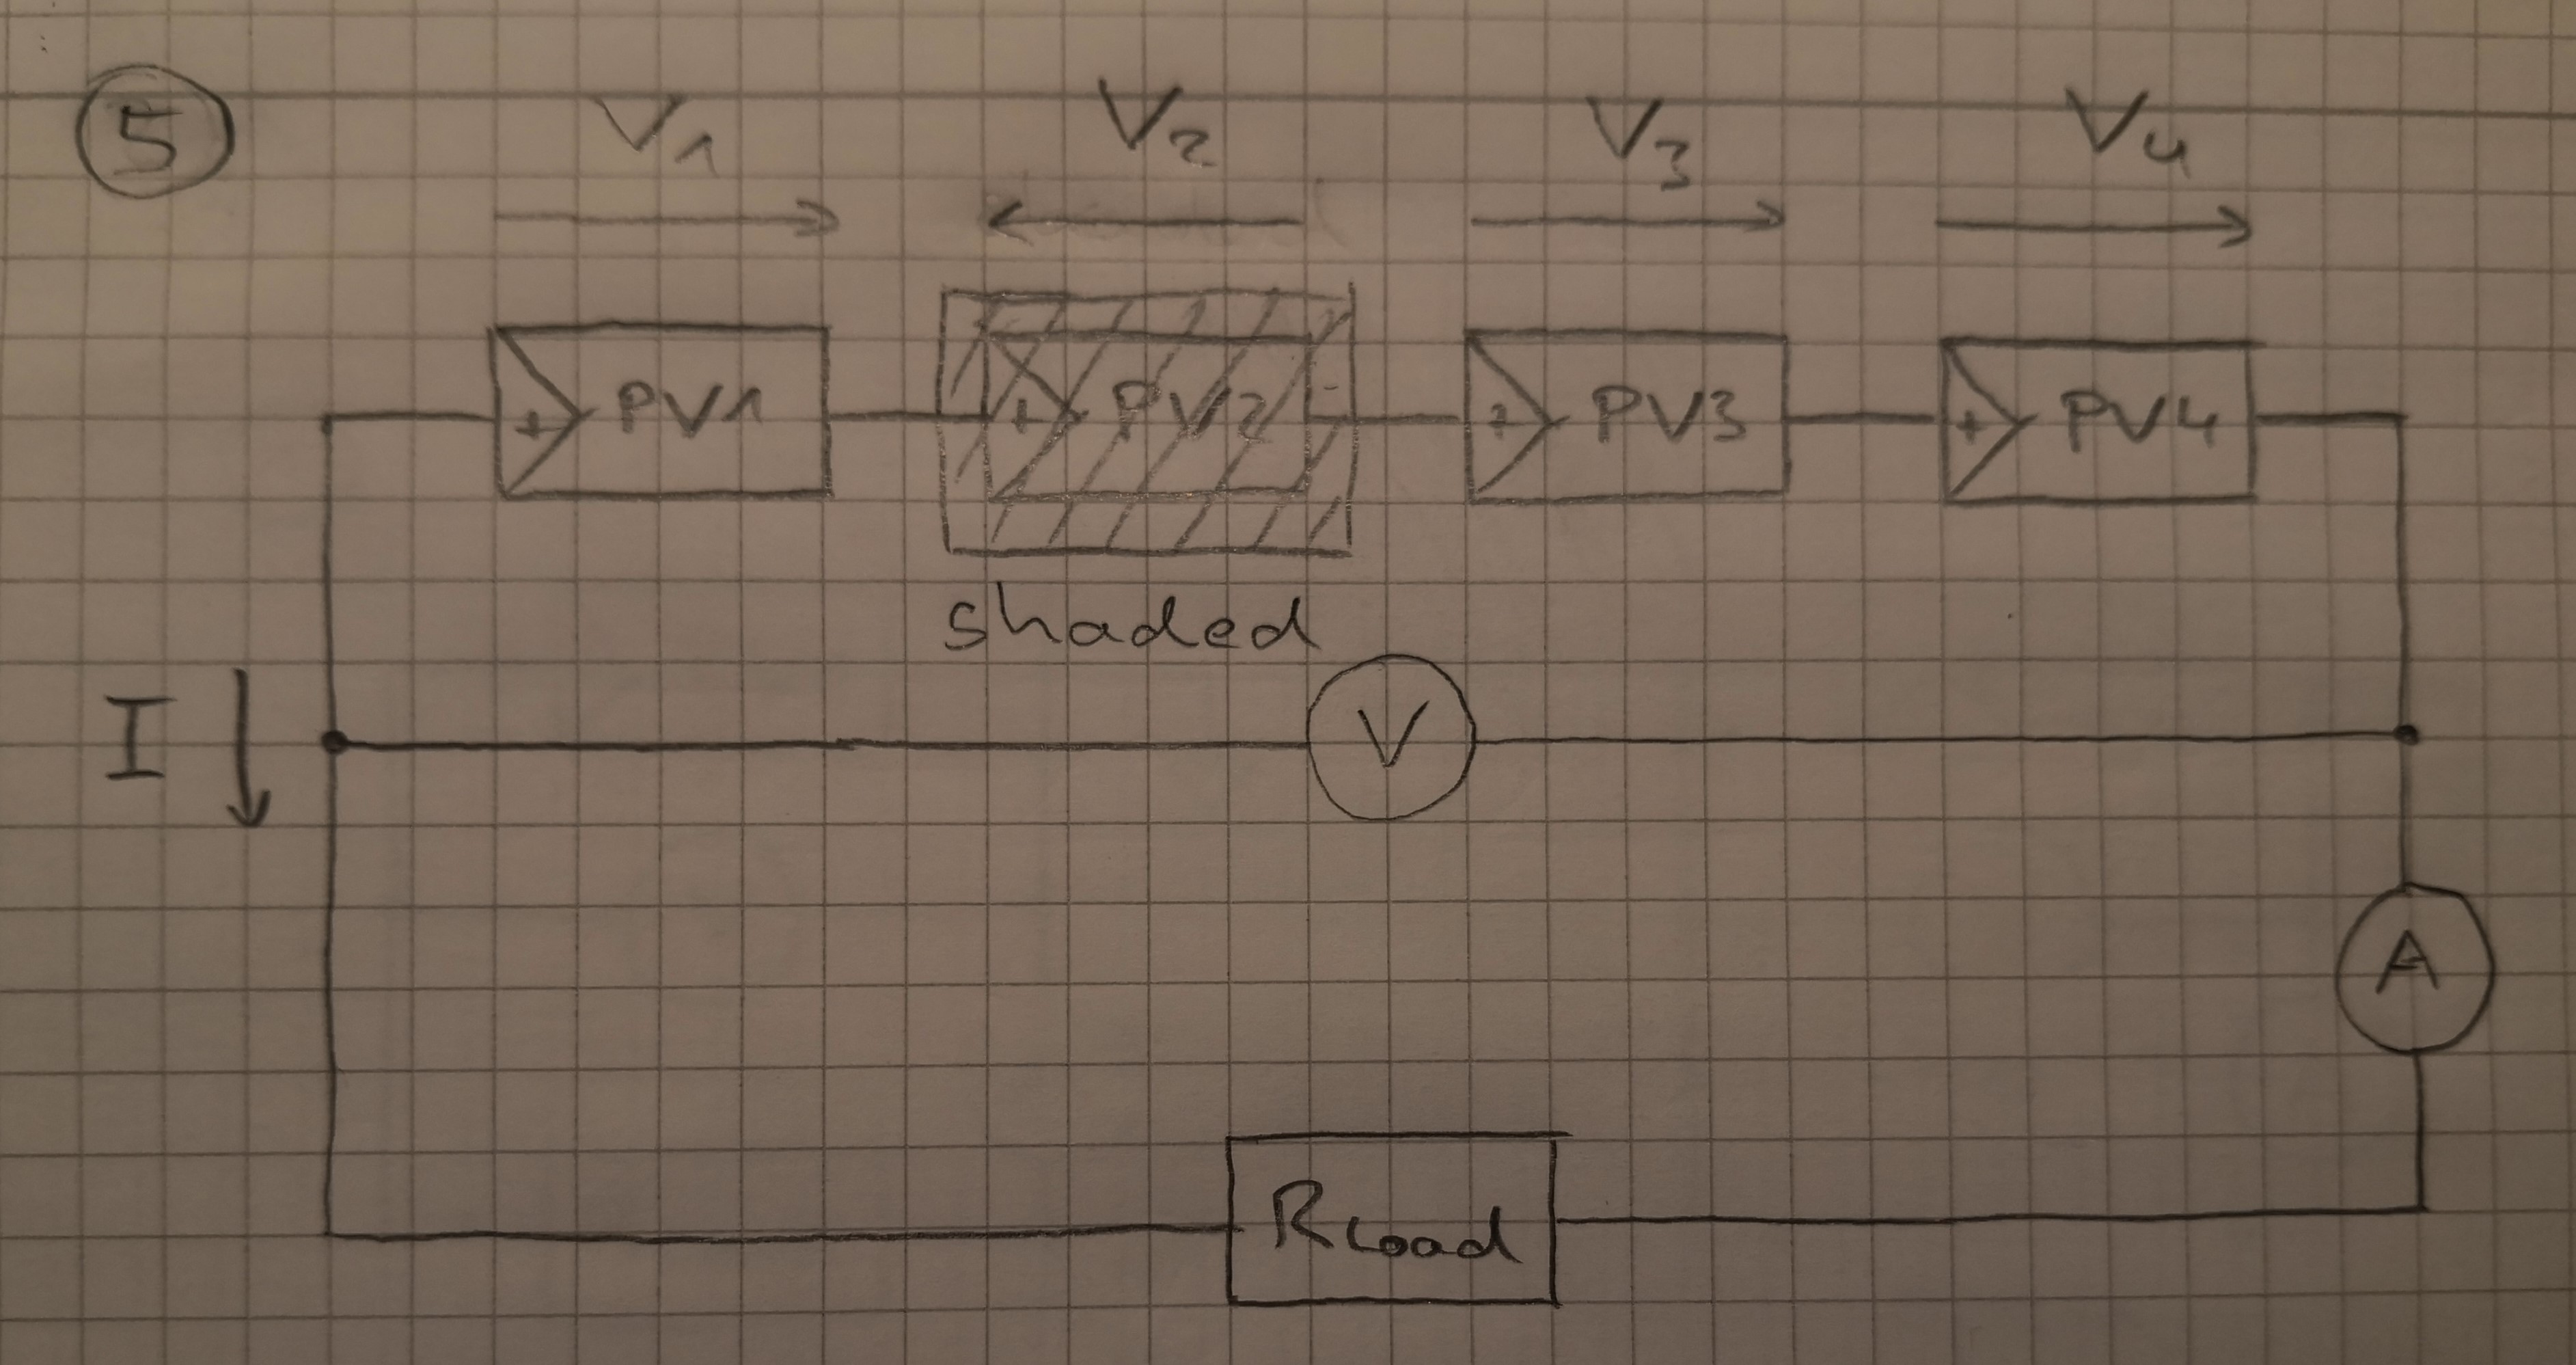 5
V1 V2 V3 V4
+ PV1 + PV2 + PV3 + PV4
shaded
I V
A
RLoad